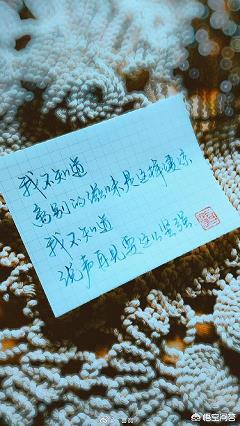 我不知道
离别的滋味是这样凄凉
我不知道
说声再见要这么坚强
悟空问答